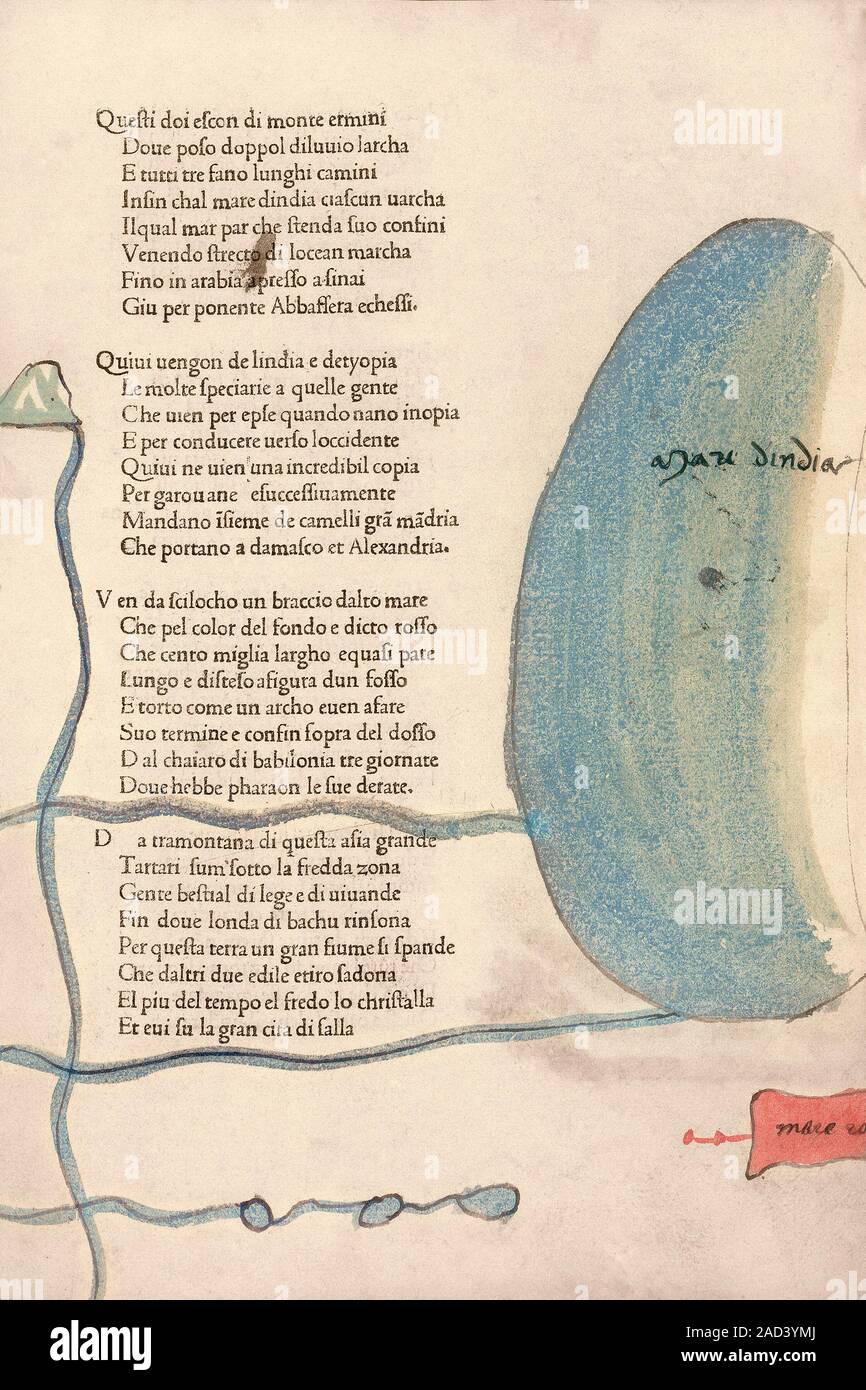 Queſti doi eſcon di monte ermini
Doue poſo doppol diluuio larcha
E tutti tre fano lunghi camini
Inſin chal mare dindia ciaſcun uarcha
Ilqual mar par che ſtenda ſuo confini
Venendo ſtrecto di locean marcha
Fino in arabia apreſſo a ſinai
Giu per ponente Abbaſſera echeſſi.
Quiui uengon de lindia e detyopia
Le molte ſpeciarie a quelle gente
Che uien per epſe quando nano inopia
E per conducere uerſo loccidente
Quiui ne uien una incredibil copia
Per garouane eſucceſſiuamente
Mandano īſieme de camelli grã mãdria
Che portano a damaſco et Alexandria.
V en da ſcilocho un braccio dalto mare
Che pel color del fondo e dicto roſſo
Che cento miglia largho equaſi pare
Lungo e diſteſo afigura dun foſſo
E torto come un archo euen afare
Suo termine e confin ſopra del doſſo
D al chaiaro di babilonia tre giornate
Doue hebbe pharaon le ſue derate.
D a tramontana di queſta aſia grande
Tartari ſum ſotto la fredda zona
Gente beſtial di lege e di uiuande
Fin doue londa di bachu rinſona
Per queſta terra un gran fiume ſi ſpande
Che daltri due edile etiro ſadona
El piu del tempo el fredo lo chriſtalla
Et eui ſu la gran cita di ſalla
mare dindia
mare ro
alamy
a
Image ID: 2AD3YMJ
www.alamy.com